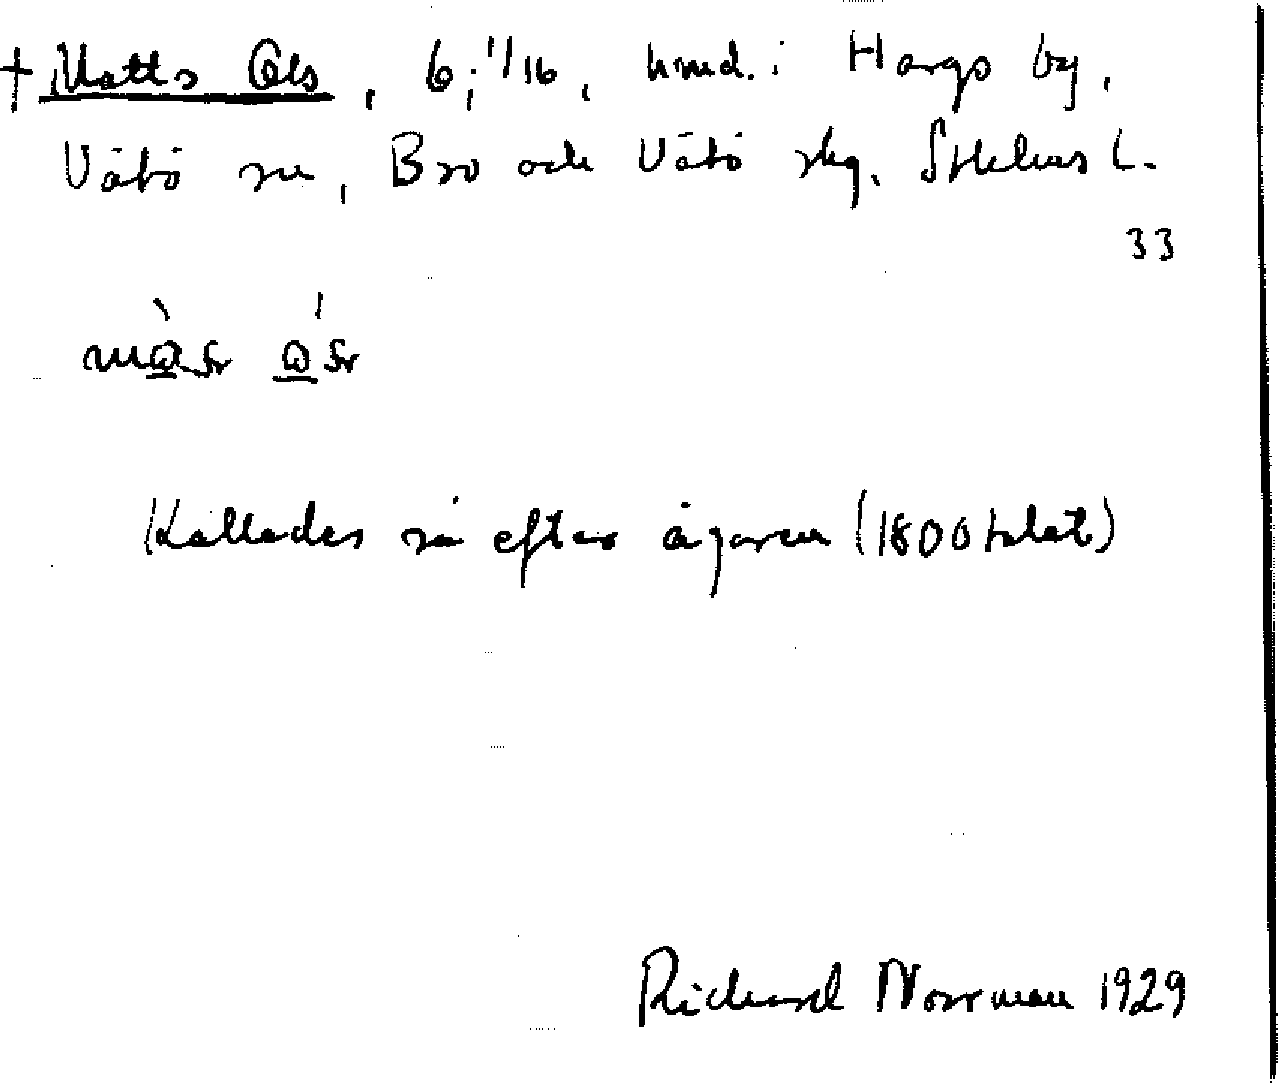 † Matts Ols, 6; 1/16, hmd. i Hargs by,
Vätö sn, Bro och Vätö skg. Sthlms L.
33
Kallades så efter ägaren (1800 talet)
Richard Norrman 1929